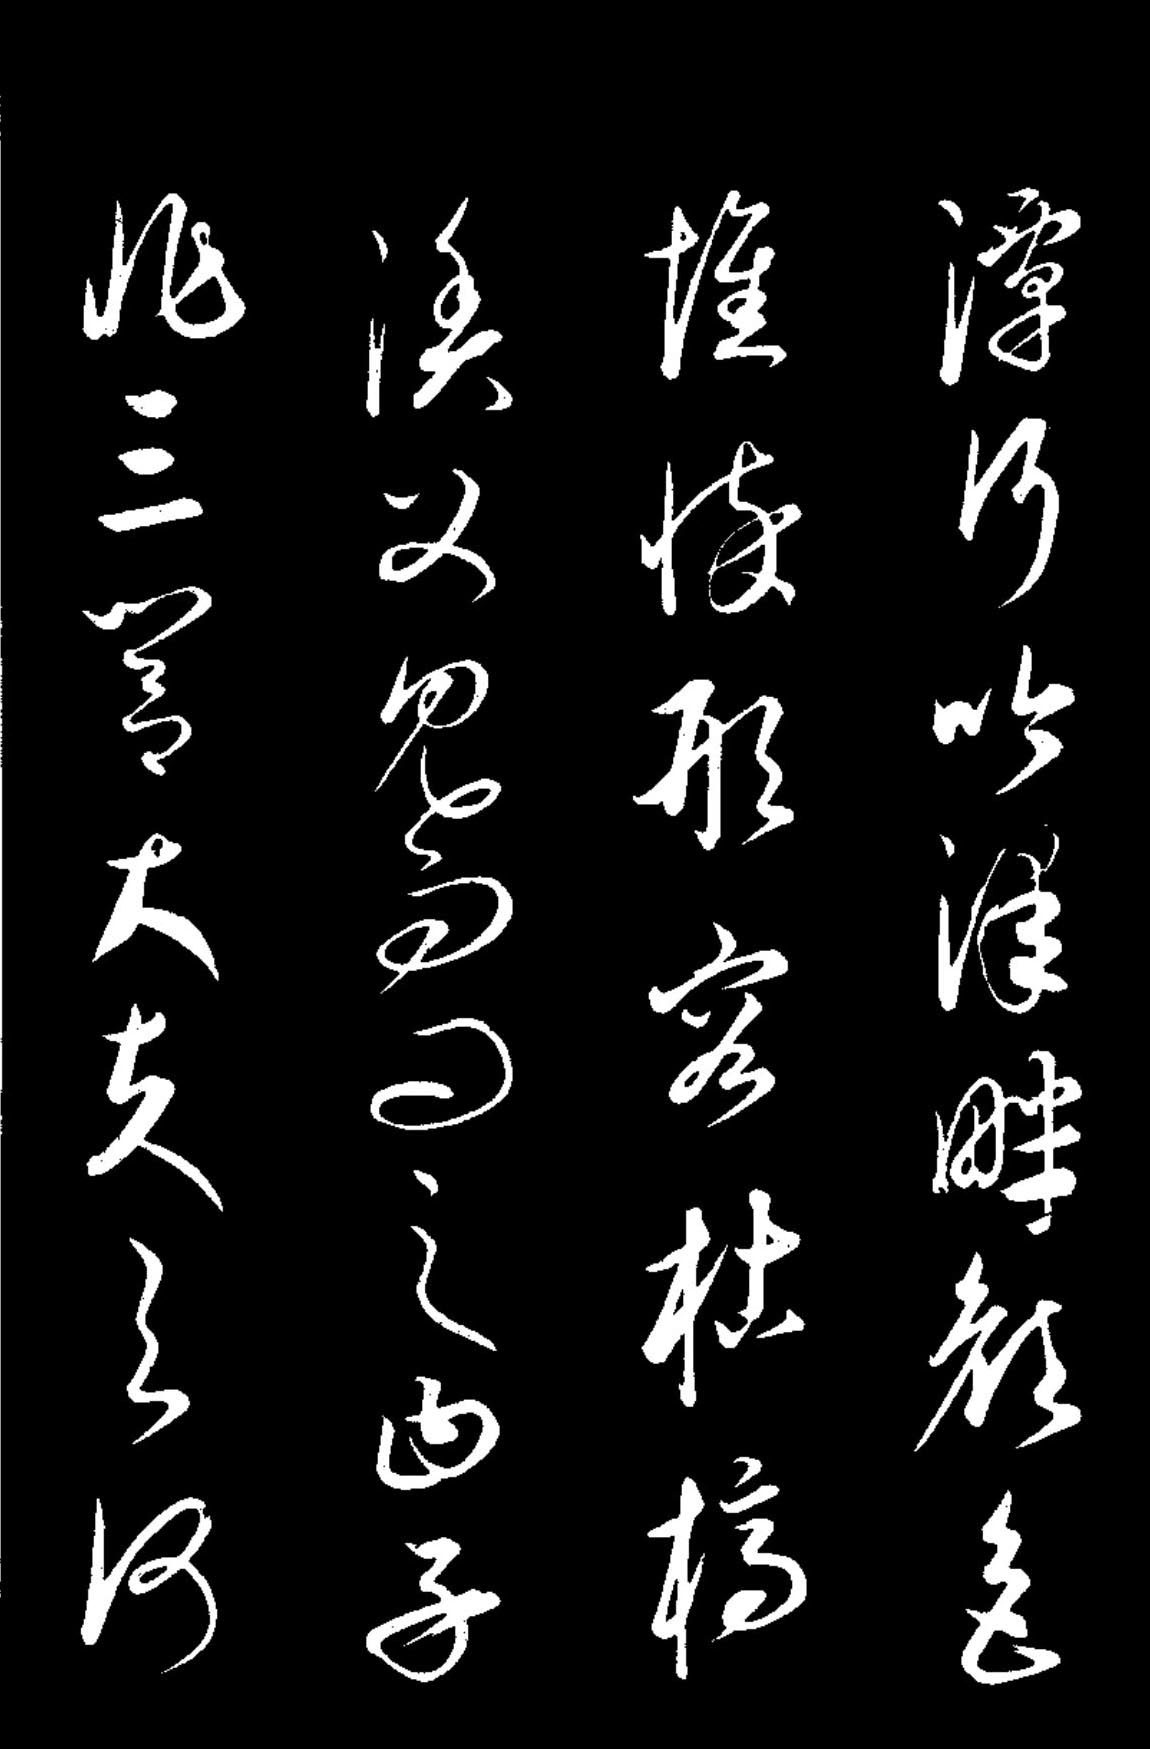 潭行吟澤畔顏色
憔悴形容枯槁
漁父見而問之曰子
非三閭大夫與何